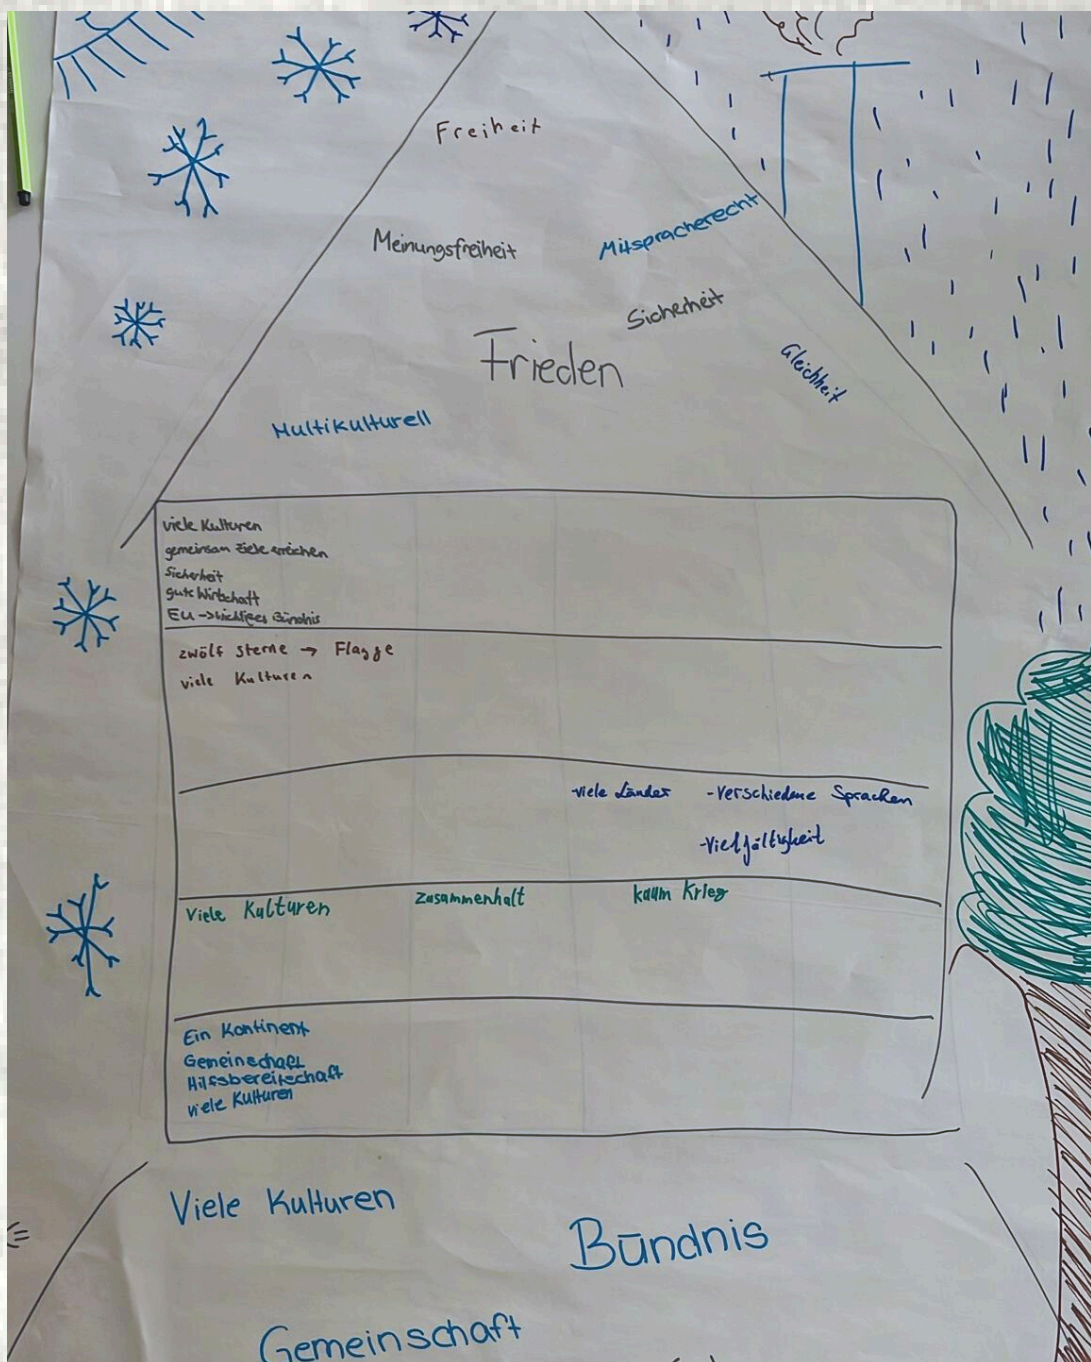 Freiheit
Meinungsfreiheit
Mitspracherecht
Sicherheit
Frieden
Gleichheit
Multikulturell
viele Kulturen
gemeinsam Ziele erreichen
Sicherheit
gute Wirtschaft
EU → wichtiges Bündnis
zwölf Sterne → Flagge
viele Kulturen
-viele Länder -verschiedene Sprachen
-Vielfältigkeit
Viele Kulturen Zusammenhalt kaum Krieg
Ein Kontinent
Gemeinschaft
Hilfsbereitschaft
viele Kulturen
Viele Kulturen
Bündnis
Gemeinschaft